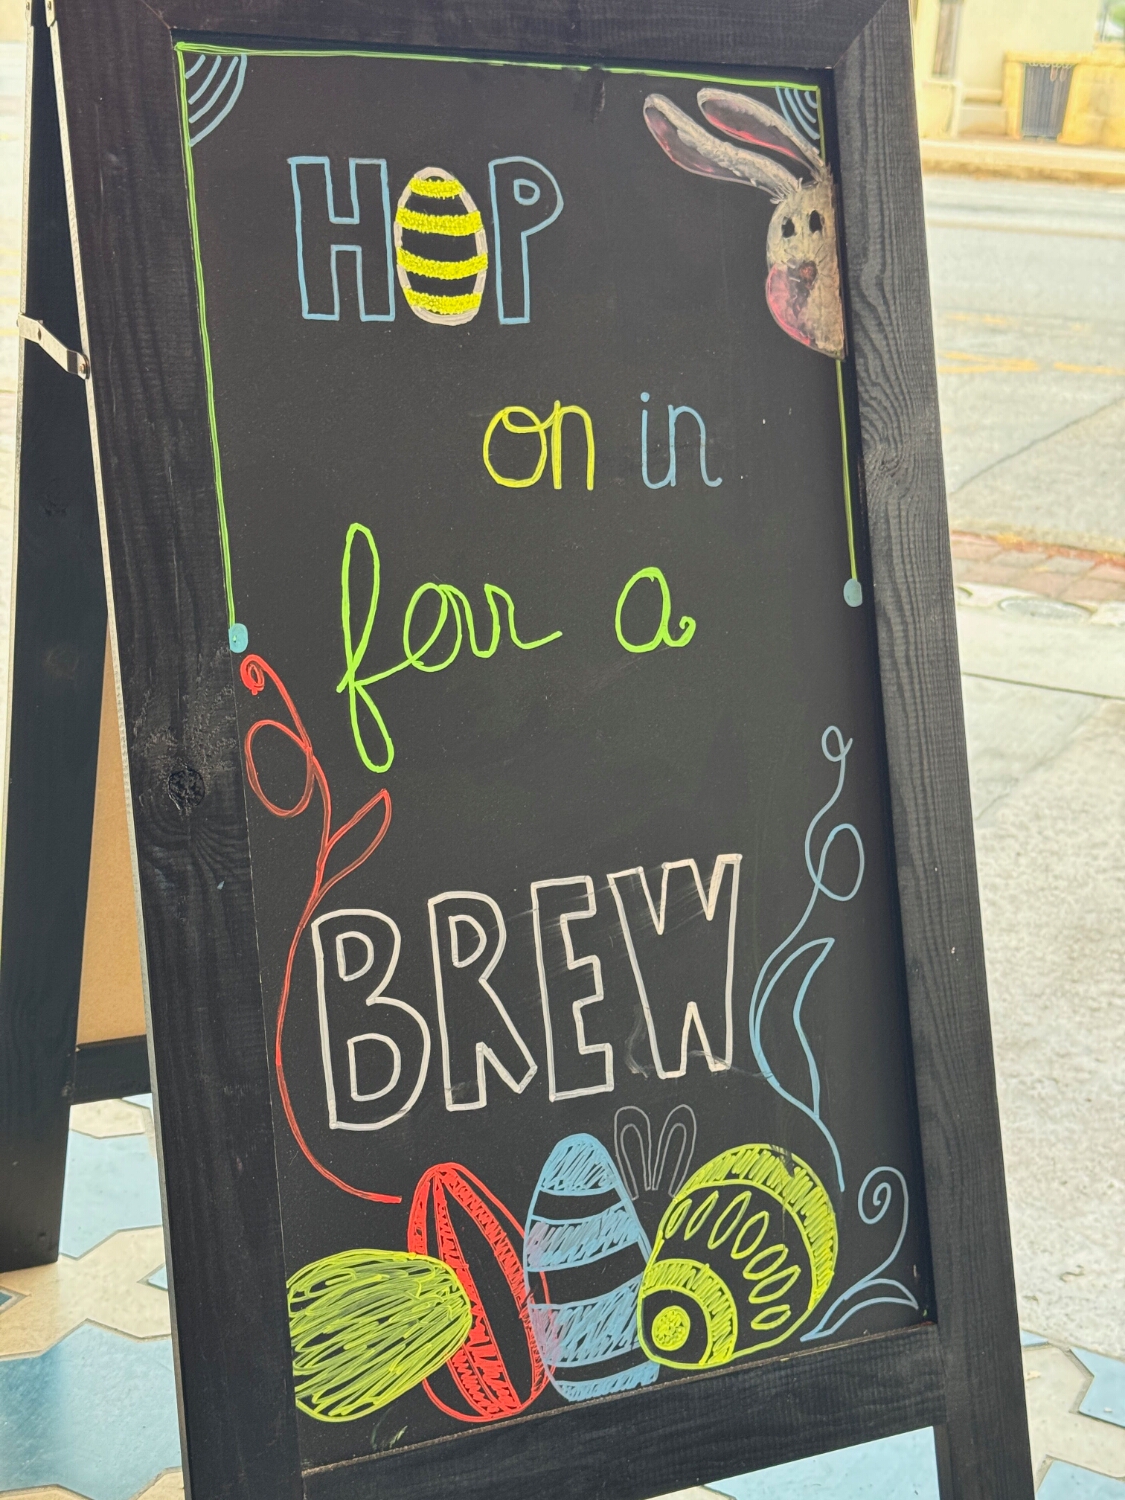 HOP
on in
for a
BREW